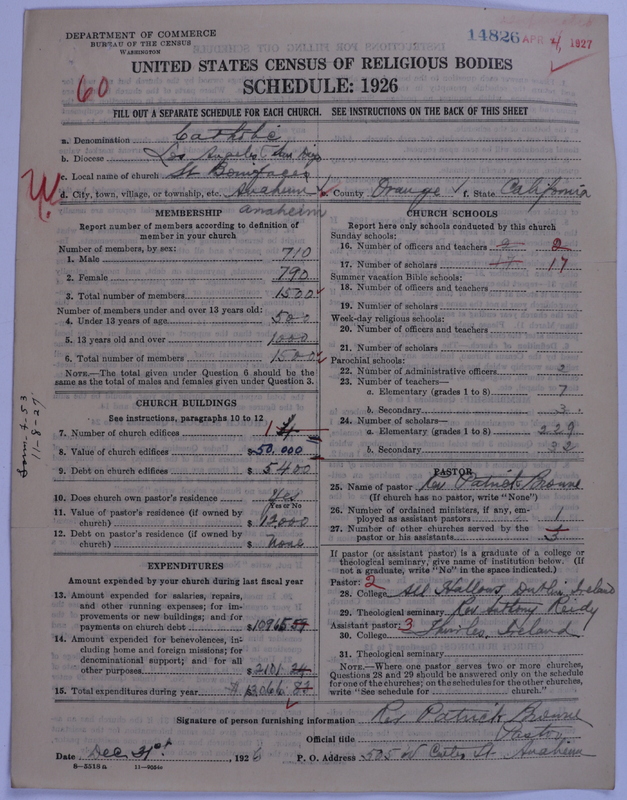 DEPARTMENT OF COMMERCE
BUREAU OF THE CENSUS
WASHINGTON
14826 APR 4, 1927
UNITED STATES CENSUS OF RELIGIOUS BODIES
SCHEDULE: 1926
60
FILL OUT A SEPARATE SCHEDULE FOR EACH CHURCH. SEE INSTRUCTIONS ON THE BACK OF THIS SHEET
a. Denomination Catholic
b. Diocese Los Angeles & San Diego
c. Local name of church St Bonifaces
d. City, town, village, or township, etc. Anaheim e. County Orange f. State California
anaheim
MEMBERSHIP
Report number of members according to definition of
member in your church
Number of members, by sex:
1. Male 710
2. Female 790
3. Total number of members 1500
Number of members under and over 13 years old:
4. Under 13 years of age 500
5. 13 years old and over 1000
6. Total number of members 1500
NOTE.—The total given under Question 6 should be the
same as the total of males and females given under Question 3.
CHURCH BUILDINGS
See instructions, paragraphs 10 to 12
7. Number of church edifices 1
8. Value of church edifices $50.000
9. Debt on church edifices $5400
10. Does church own pastor's residence Yes
Yes or No
11. Value of pastor's residence (if owned by
church) $12,000
12. Debt on pastor's residence (if owned by
church) $None
EXPENDITURES
Amount expended by your church during last fiscal year
13. Amount expended for salaries, repairs,
and other running expenses; for im-
provements or new buildings; and for
payments on church debt $10965 59
14. Amount expended for benevolences, in-
cluding home and foreign missions; for
denominational support; and for all
other purposes $2101 24
15. Total expenditures during year $13066 83
CHURCH SCHOOLS
Report here only schools conducted by this church
Sunday schools:
16. Number of officers and teachers 2 2
17. Number of scholars 17 17
Summer vacation Bible schools:
18. Number of officers and teachers
19. Number of scholars
Week-day religious schools:
20. Number of officers and teachers
21. Number of scholars
Parochial schools:
22. Number of administrative officers 2
23. Number of teachers—
a. Elementary (grades 1 to 8) 7
b. Secondary 3
24. Number of scholars—
a. Elementary (grades 1 to 8) 229
b. Secondary 32
PASTOR
25. Name of pastor Rev Patrick Browne
(If church has no pastor, write "None")
26. Number of ordained ministers, if any, em-
ployed as assistant pastors 1
27. Number of other churches served by the
pastor or his assistants 3
If pastor (or assistant pastor) is a graduate of a college or
theological seminary, give name of institution below. (If
not a graduate, write "No" in the space indicated.)
Pastor: 2
28. College All Hallows, Dublin Ireland
29. Theological seminary Rev Anthony Reidy
Assistant pastor: 3
30. College Thurles, Ireland
31. Theological seminary
NOTE.—Where one pastor serves two or more churches,
Questions 28 and 29 should be answered only on the schedule
for one of the churches; on the schedules for the other churches,
write "See schedule for church."
Signature of person furnishing information Rev Patrick Browne
Official title Pastor
Date Dec 21st, 1926 P. O. Address 505 W Center St Anaheim
8—5518a 11—9054
11-8-27